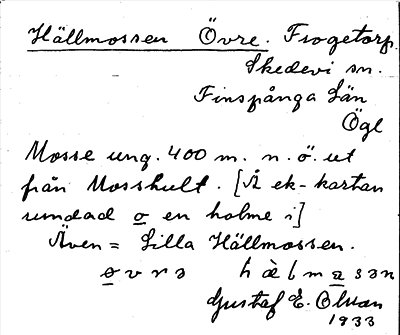 Hällmossen Övre. Frogetorp.
Skedevi sn.
Finspånga Län
Ögl
Mosse ung. 400 m. n. ö. ut
från Mosshult. [Å ek-kartan
rundad o en holme i]
Även = Lilla Hällmossen.
øvrə hàlmasən
Gustaf E. Olsson
1933